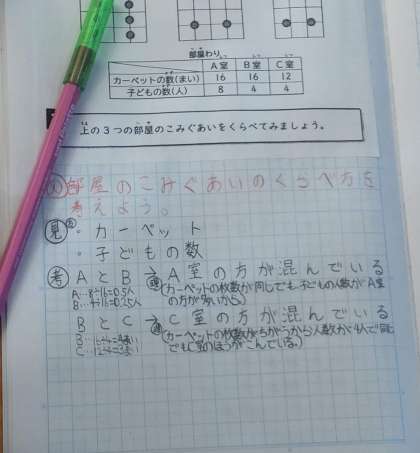 部屋わり
A室 B室 C室
カーペットの数(まい) 16 16 12
子どもの数(人) 8 4 4
上の3つの部屋のこみぐあいをくらべてみましょう。
部屋のこみぐあいのくらべ方を
考えよう。
見 ・カーペット
・子どもの数
考 AとB→A室の方が混んでいる
A…8÷16=0.5人 (カーペットの枚数が同じでも子どもの人数がA室
B…4÷16=0.25人 の方が多いから。)
BとC→C室の方が混んでいる
B…16÷4=4まい (カーペットの枚数がちがうから人数が4人で同じ
C…12÷4=3まい でもC室のほうがこんでいる。)